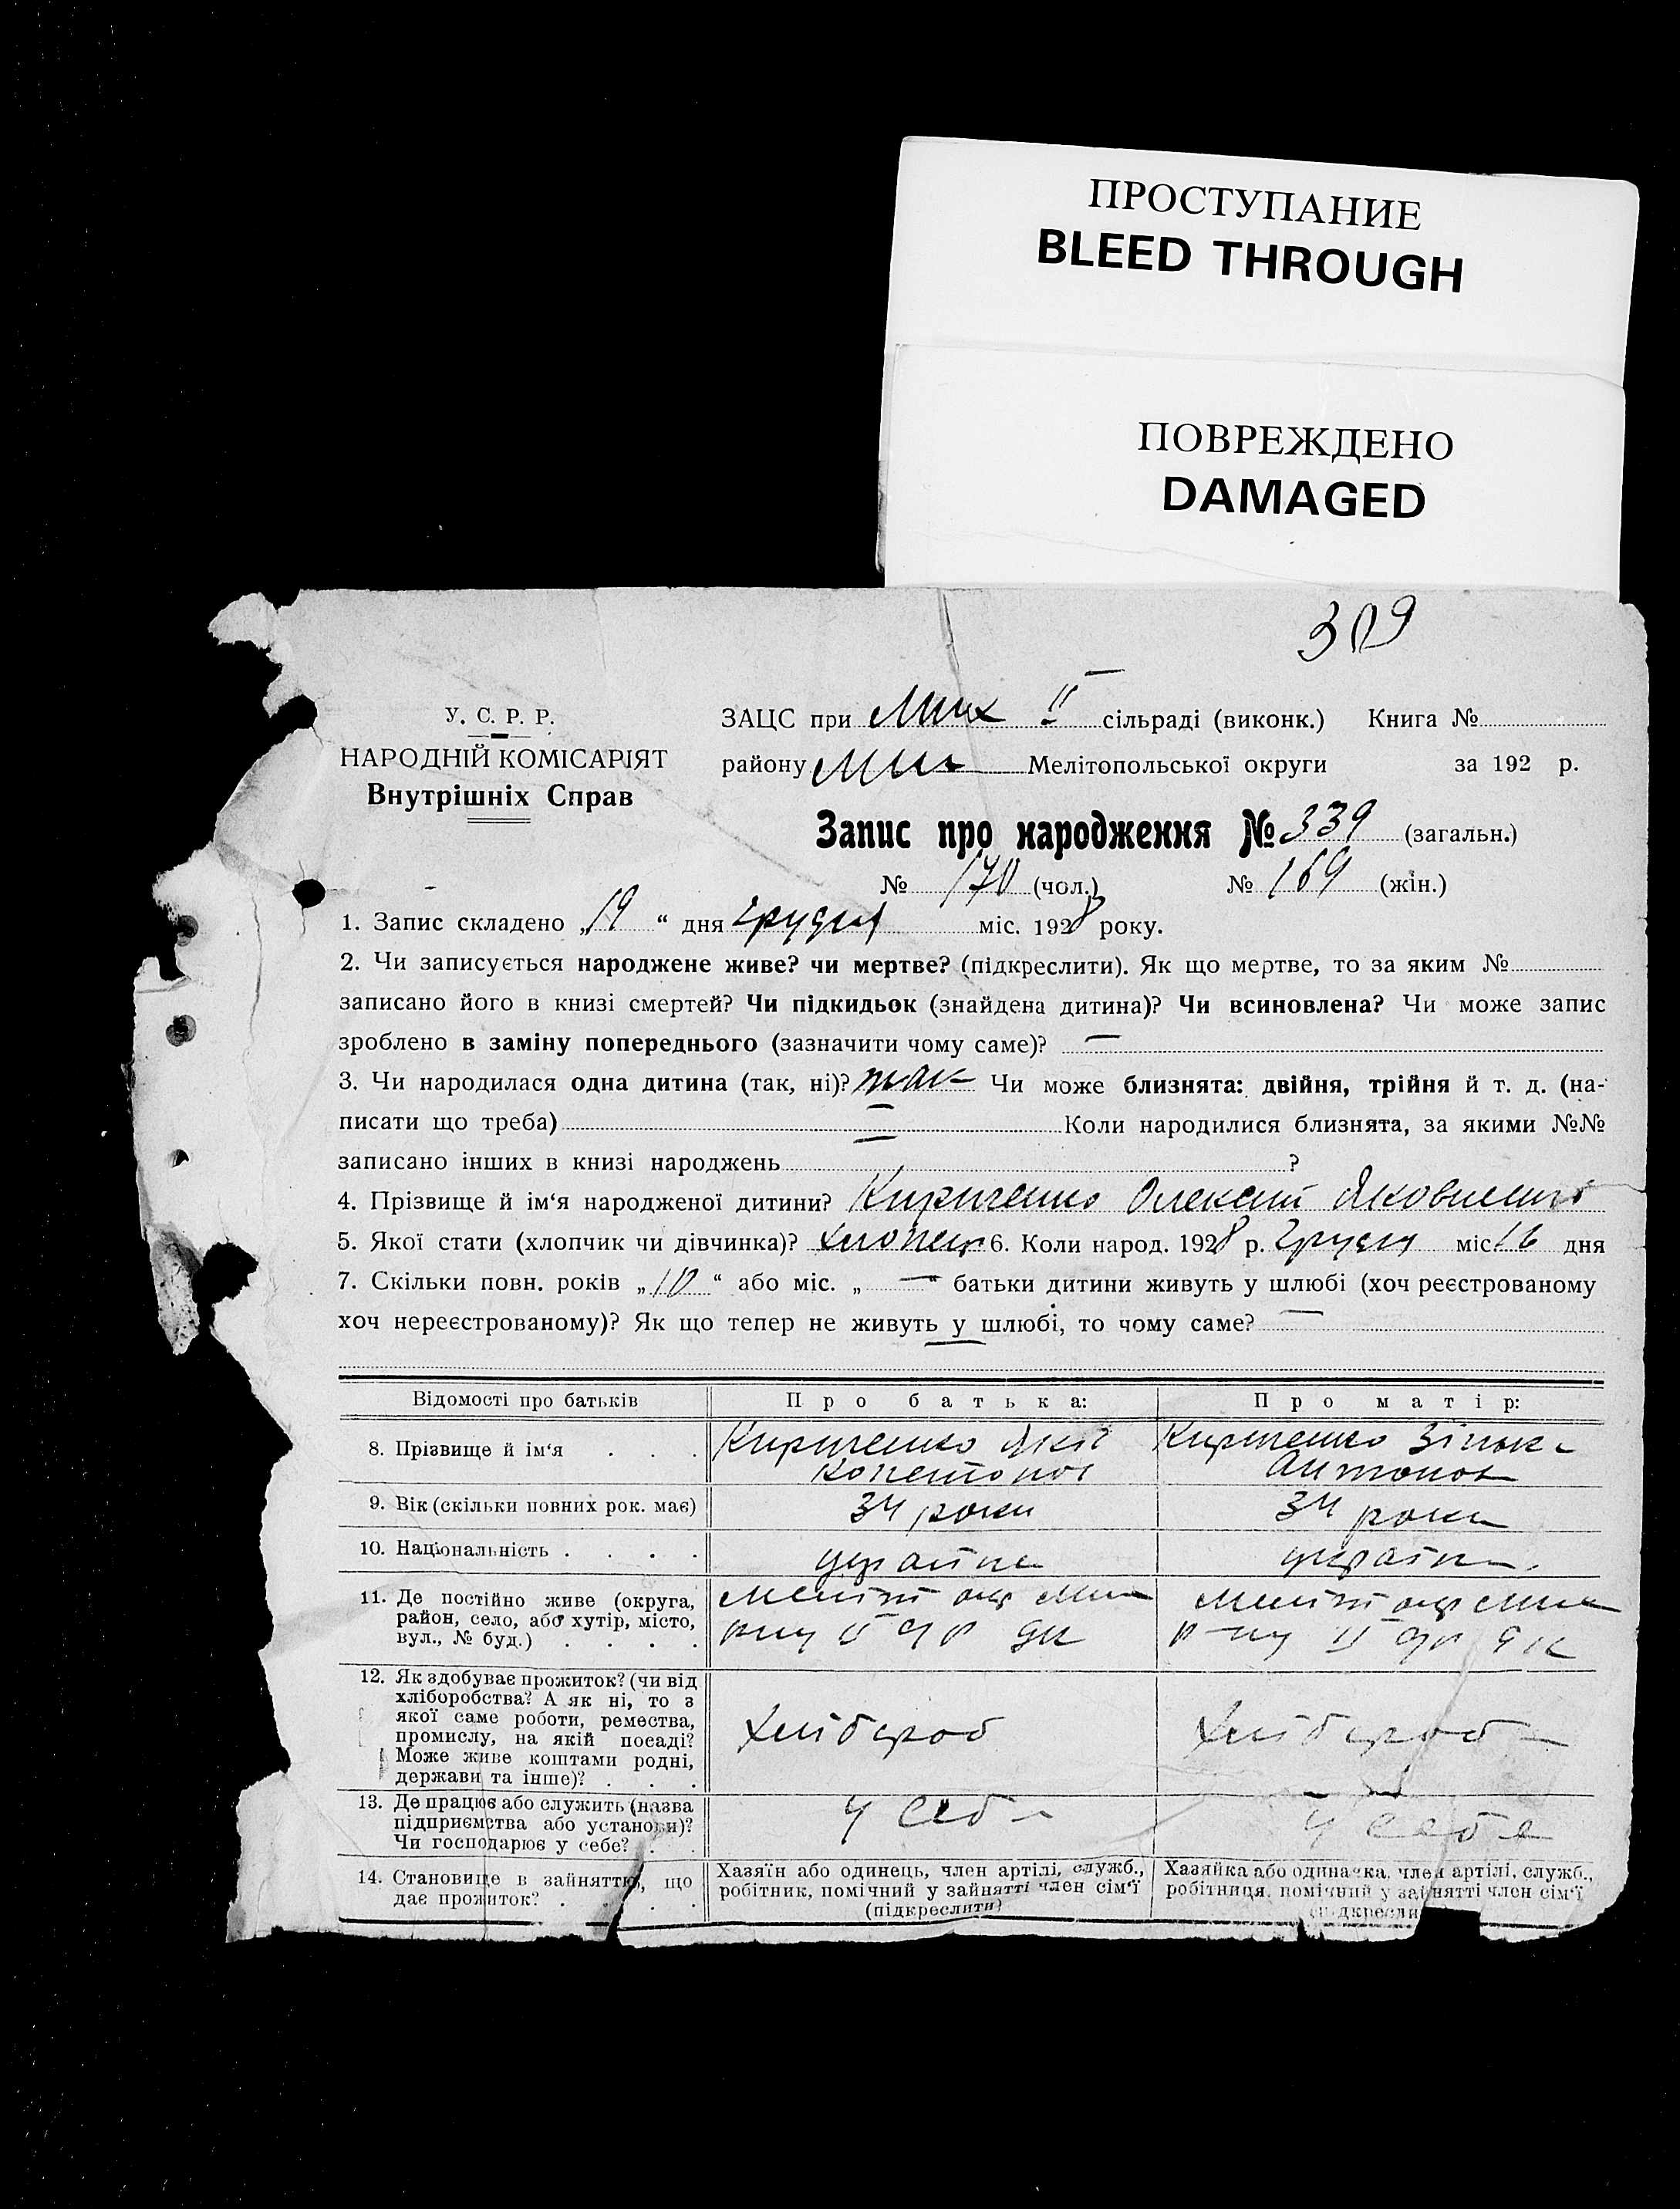 ПРОСТУПАНИЕ
BLEED THROUGH
ПОВРЕЖДЕНО
DAMAGED
309
У. С. Р. Р.
НАРОДНІЙ КОМІСАРІЯТ
Внутрішніх Справ
ЗАЦС при Мих II сільраді (виконк.) Книга №
району Мих Мелітопольської округи за 192 р.
Запис про народження № 339 (загальн.)
№ 170 (чол.) № 169 (жін.)
1. Запис складено „19“ дня грудня міс. 1928 року.
2. Чи записується народжене живе? чи мертве? (підкреслити). Як що мертве, то за яким №
записано його в книзі смертей? Чи підкидьок (знайдена дитина)? Чи всиновлена? Чи може запис
зроблено в заміну попереднього (зазначити чому саме)? —
3. Чи народилася одна дитина (так, ні)? так Чи може близнята: двійня, трійня й т. д. (на-
писати що треба) — Коли народилися близнята, за якими №№
записано інших в книзі народжень — ?
4. Прізвище й ім‘я народженої дитини? Кириченко Олексій Якович
5. Якої стати (хлопчик чи дівчинка)? хлопець 6. Коли народ. 1928 р. грудня міс. 16 дня
7. Скільки повн. років „10“ або міс. „—“ батьки дитини живуть у шлюбі (хоч реєстрованому
хоч нереєстрованому)? Як що тепер не живуть у шлюбі, то чому саме? —
Відомості про батьків Про батька: Про матір:
8. Прізвище й ім‘я Кириченко Кириченко
Антонов
9. Вік (скільки повних рок. має) 34 роки 34 роки
10. Національність україне україн
11. Де постійно живе (округа,
район, село, або хутір, місто,
вул., № буд.) Меліт окр Мих Меліт окр Мих
12. Як здобуває прожиток? (чи від
хліборобства? А як ні, то з
якої саме роботи, ремества,
промислу, на якій посаді?
Може живе коштами родні,
держави та інше)? Хлібороб Хлібороб
13. Де працює або служить (назва
підприємства або установи)?
Чи господарює у себе? У себе У себе
14. Становище в зайняттю, що
дає прожиток?
Хазяїн або одинець, член артілі, служб.,
робітник, помічний у зайнятті член сім‘ї
(підкреслити)
Хазяйка або одиначка, член артілі, служб.,
робітниця, помічний у зайнятті член сім‘ї